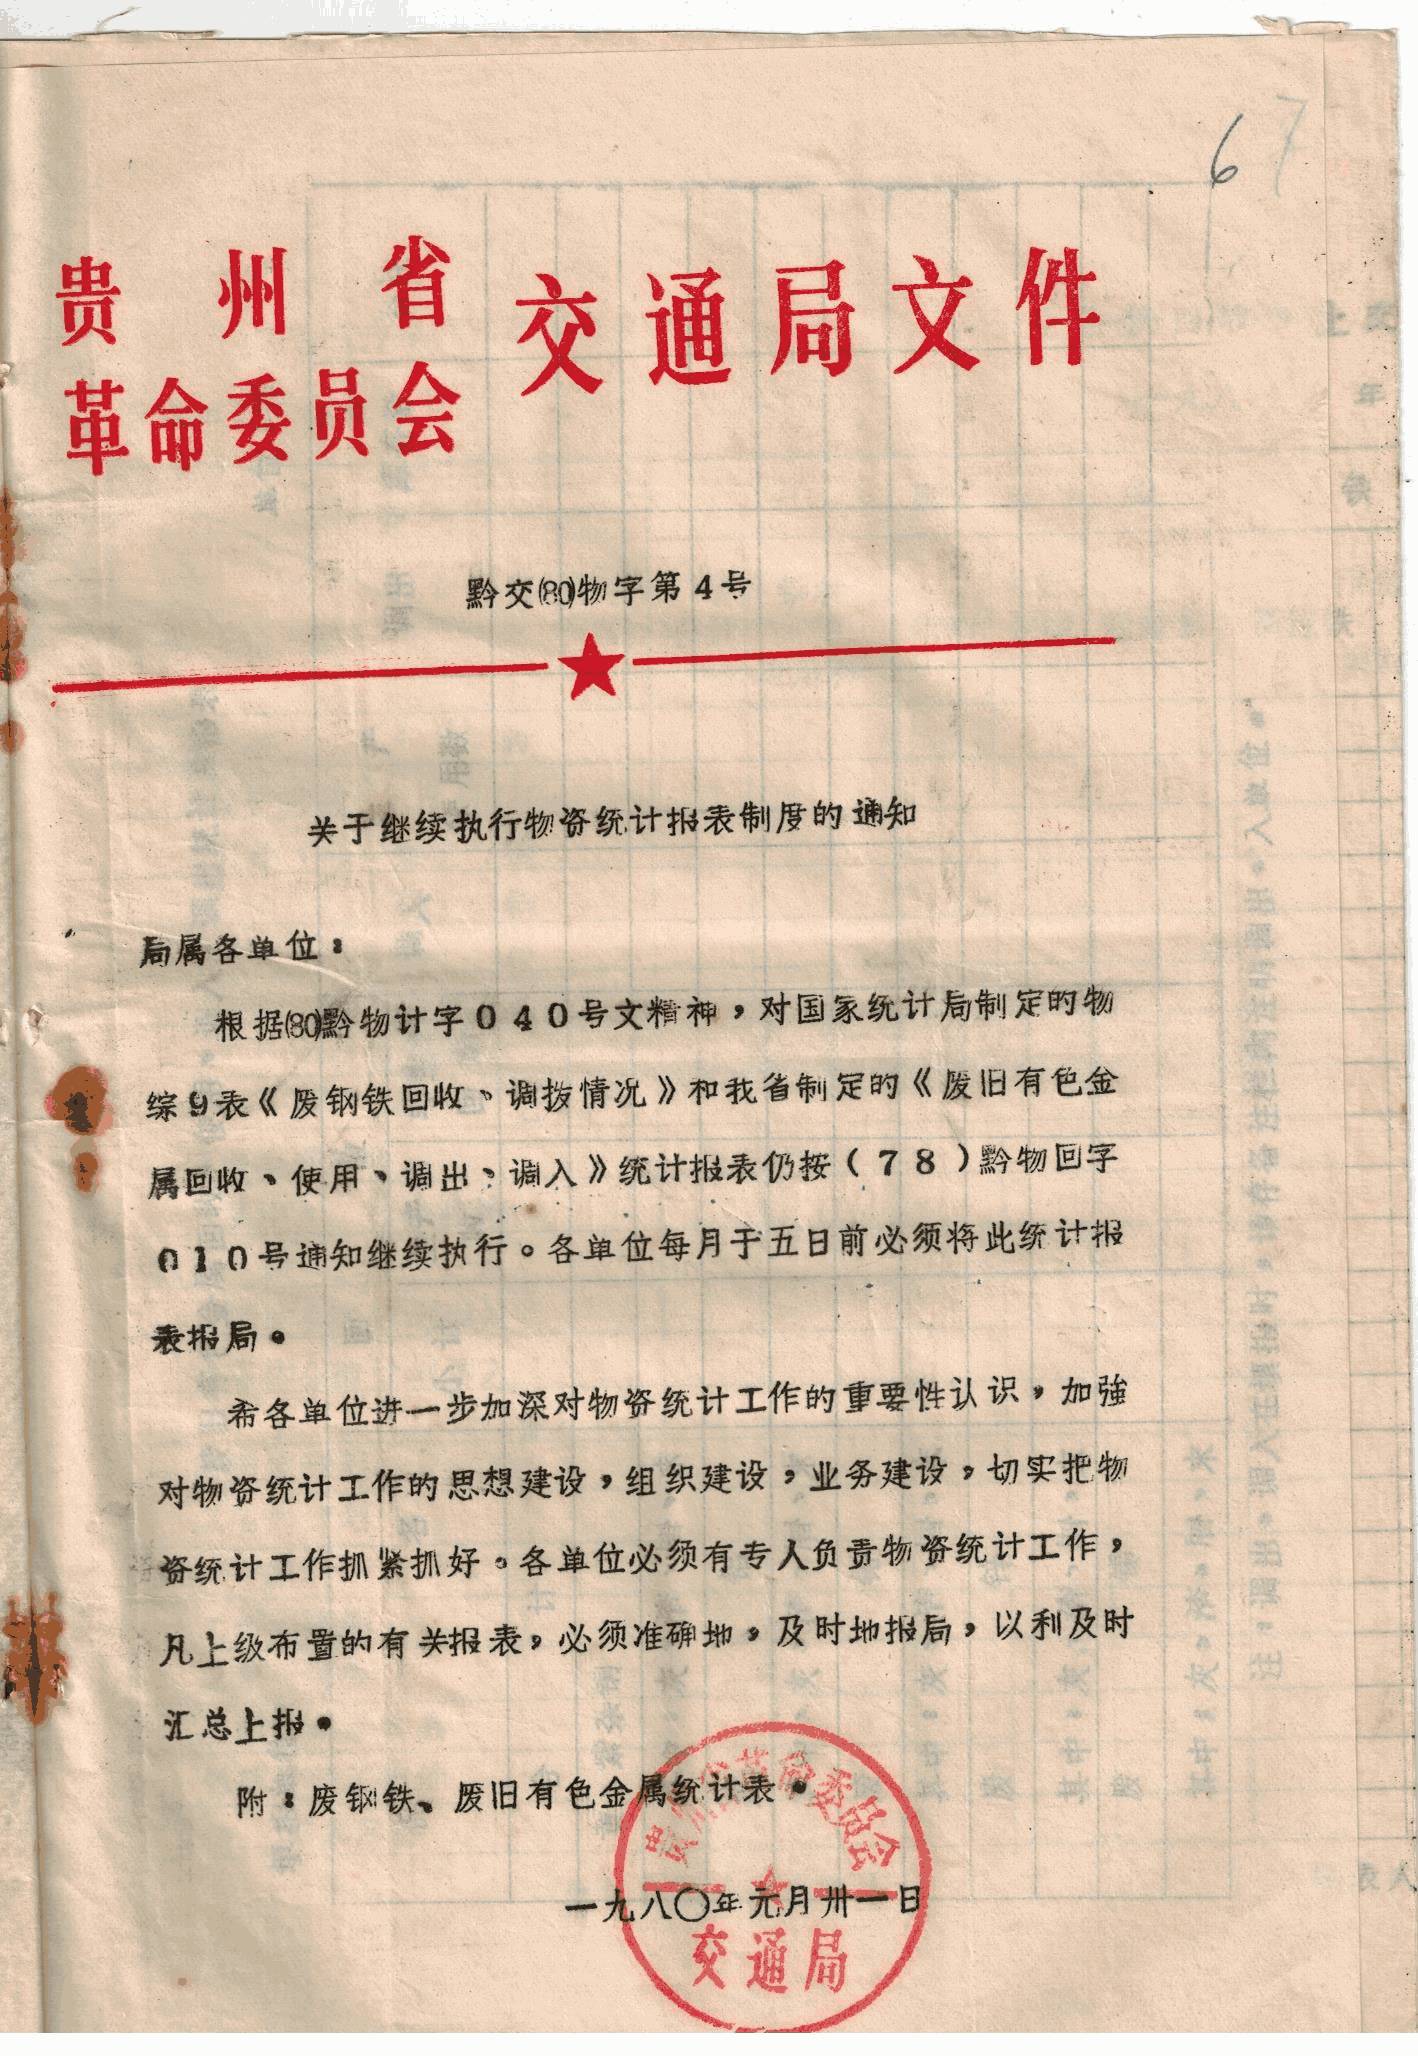 67
贵州省
革命委员会
交通局文件
黔交(80)物字第4号
关于继续执行物资统计报表制度的通知
局属各单位：
根据(80)黔物计字040号文精神，对国家统计局制定的物
综9表《废钢铁回收、调拨情况》和我省制定的《废旧有色金
属回收、使用、调出、调入》统计报表仍按（78）黔物回字
010号通知继续执行。各单位每月于五日前必须将此统计报
表报局。
希各单位进一步加深对物资统计工作的重要性认识，加強
对物资统计工作的思想建设，组织建设，业务建设，切实把物
资统计工作抓紧抓好。各单位必须有专人负责物资统计工作，
凡上级布置的有关报表，必须准确地，及时地报局，以利及时
汇总上报。
附：废钢铁、废旧有色金属统计表。
贵州省革命委员会
一九八〇年元月卅一日
交通局